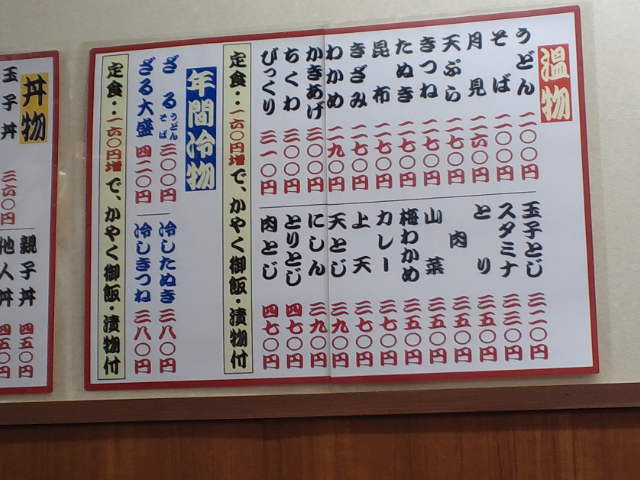 温物
うどん 二〇〇円
そば 二〇〇円
月見 二六〇円
天ぷら 二七〇円
きつね 二七〇円
たぬき 二七〇円
昆布 二七〇円
きざみ 二七〇円
わかめ 二九〇円
かきあげ 三〇〇円
ちくわ 三〇〇円
びっくり 三一〇円
玉子とじ 三一〇円
スタミナ 三三〇円
とり 三五〇円
肉 三五〇円
山菜 三五〇円
梅わかめ 三五〇円
カレー 三七〇円
上天 三七〇円
天とじ 三九〇円
にしん 三九〇円
とりとじ 四七〇円
肉とじ 四七〇円
定食‥一六〇円増で、かやく御飯・漬物付
年間冷物
ざるうどんそば 三〇〇円
ざる大盛 四二〇円
冷したぬき 三八〇円
冷しきつね 三八〇円
定食‥一六〇円増で、かやく御飯・漬物付
丼物
玉子丼 三六〇円
親子丼 四五〇円
他人丼 四五〇円